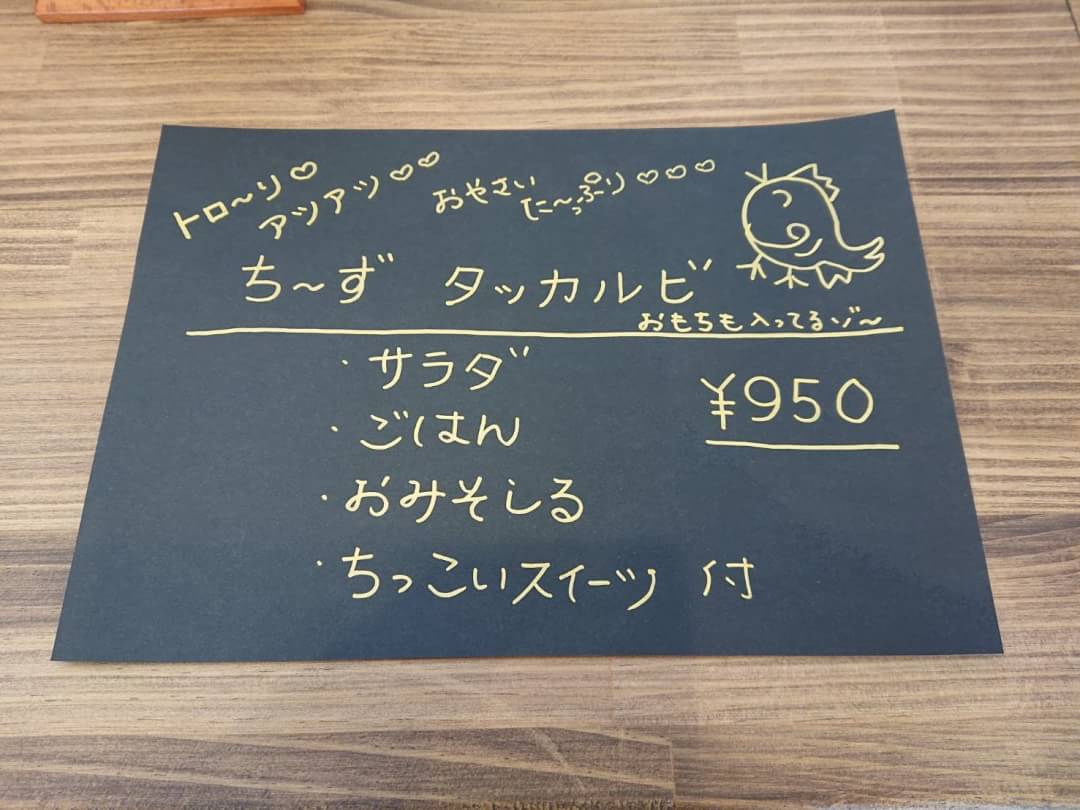 トロ〜り♡
アツアツ♡♡
おやさい
た〜っぷり♡♡♡
ち〜ず タッカルビ
おもちも入ってるゾ〜
・サラダ
¥950
・ごはん
・おみそしる
・ちっこいスイーツ 付